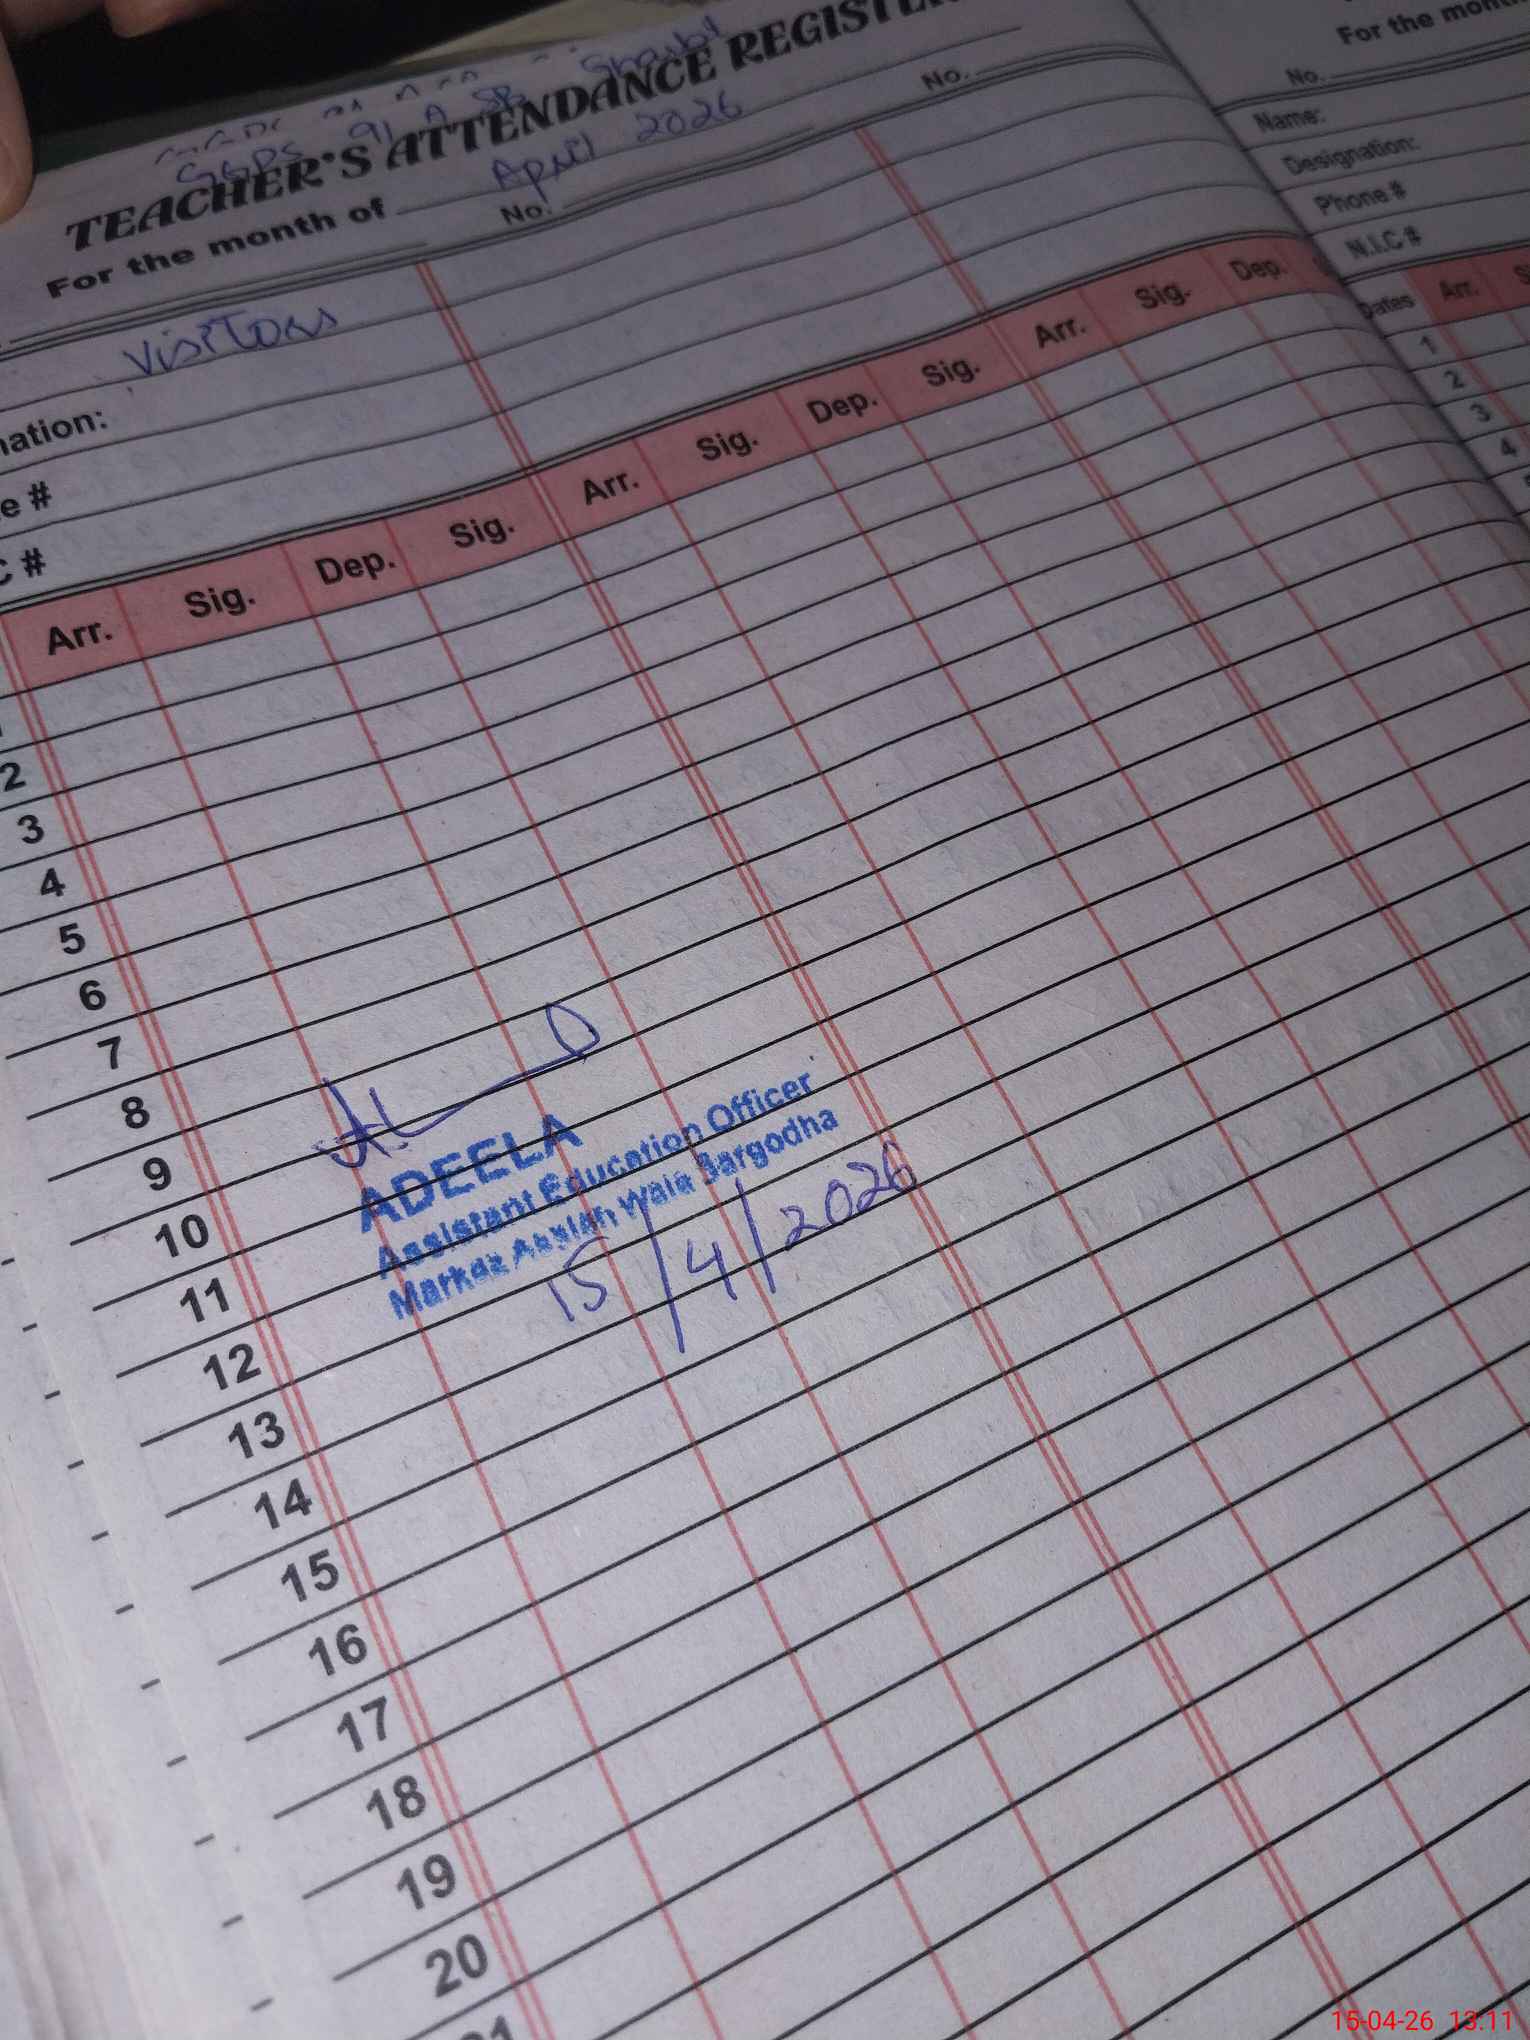 GGPS 91 A SB
TEACHER'S ATTENDANCE REGISTER
For the month of April 2026
No. No.
Visitors
nation:
e #
C #
Arr. Sig. Dep. Sig. Arr. Sig. Dep. Sig. Arr. Sig. Dep.
2
3
4
5
6
7
8
9
10
11
12
13
14
15
16
17
18
19
20
21
ADEELA
Assistant Education Officer
Markaz Wala Sargodha
15/4/2026
For the month
No.
Name:
Designation:
Phone #
N.I.C #
Dates Arr.
1
2
3
4
15-04-26 13:11